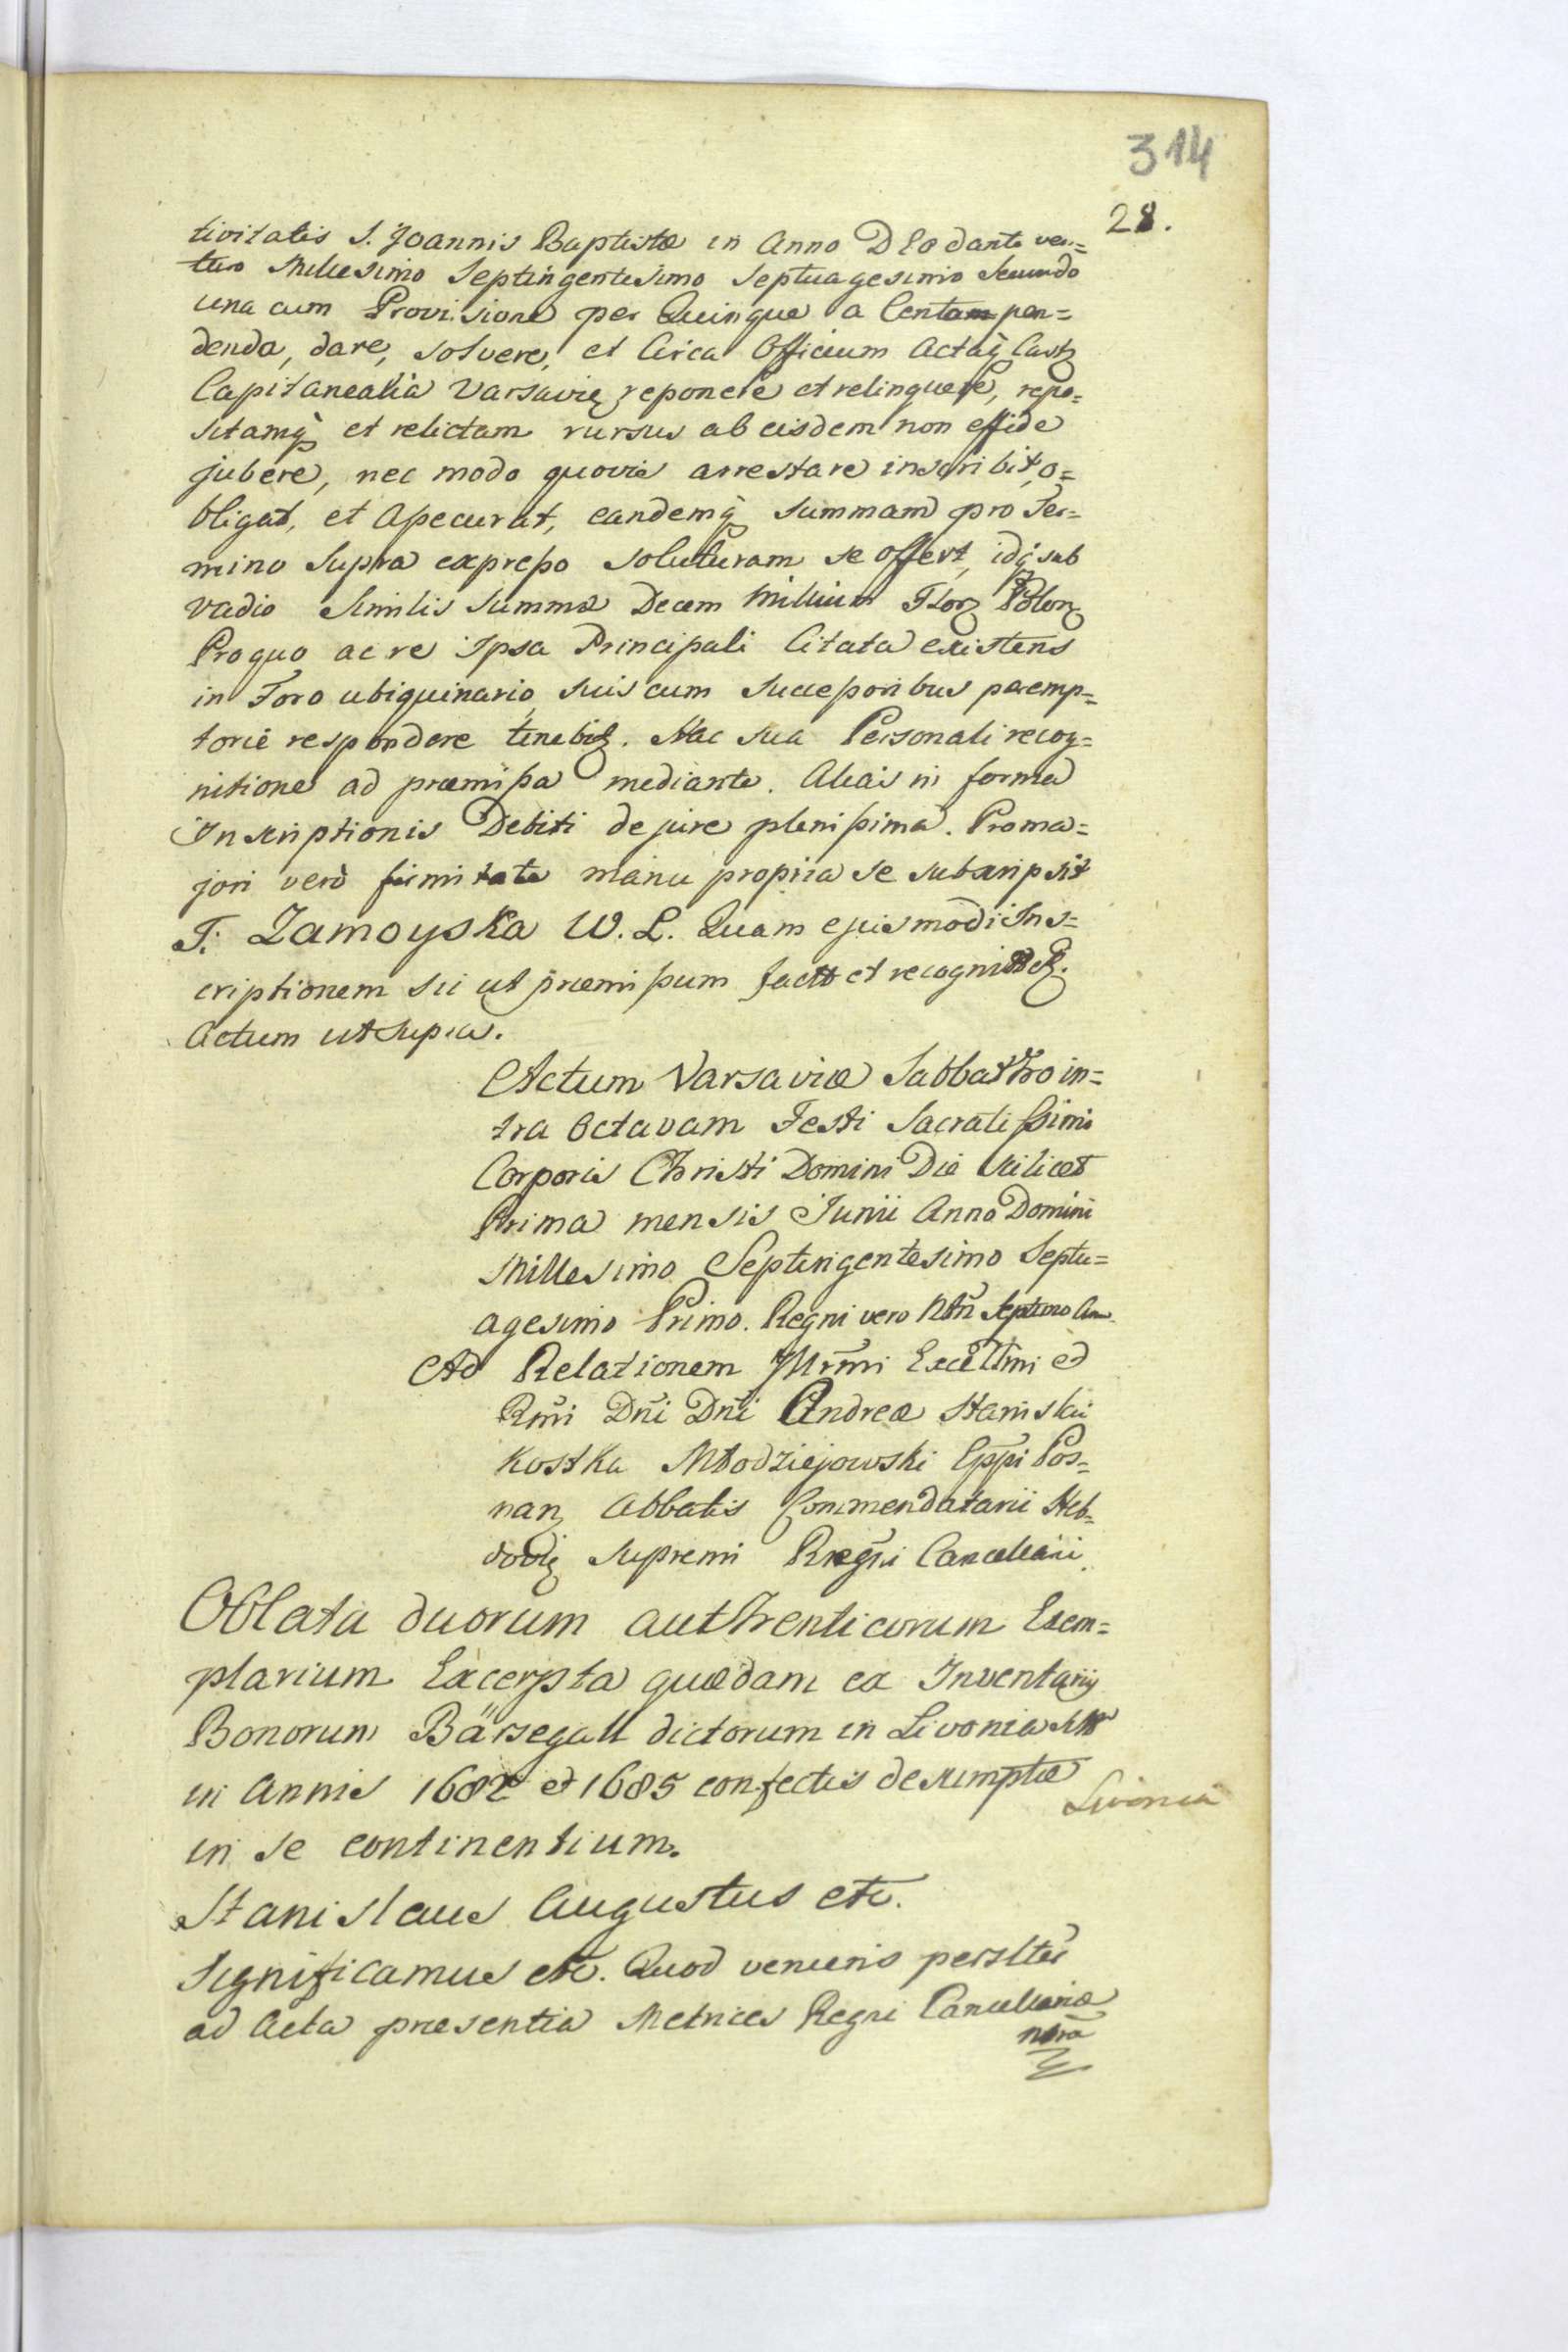 314
28.
tivitatis S. Joannis Baptistæ in Anno DEo dante ven=
turo Millesimo Septingentesimo Septuagesimo Secundo
una cum Provisione per Quinque a Centum pen=
denda, dare, solvere, et Circa Officium Actaq̃ Castr
Capitanealia Varsavien reponere et relinquere, repo=
sitamq̃ et relictam rursus ab eisdem non effide
jubere, nec modo quovis arrestare inscribit, o=
bligat, et Assecurat, eandemq̃ summam pro Ter=
mino supra expresso soluturam se offert, idq̃ sub
vadio similis summæ Decem Millium Flor Polon
Pro quo ac re Ipsa Principali Citata existens
in Foro ubiquinario, suis cum successoribus peremp=
torie respondere tenebit. Hac sua Personali recog=
nitione ad præmissa mediante. Aliàs in forma
Inscriptionis Debiti de jure plenissima. Pro ma=
jori verò firmitate manu propria se subscripsit
T. Zamoyska W. L. Quam ejusmodi Ins=
criptionem sic ut præmissum facto et recognit
Actum ut supra.
Actum Varsaviæ Sabbatho in=
tra Octavam Festi Sacratissimi
Corporis Christi Domini Die scilicet
Prima mensis Junii Anno Domini
Millesimo Septingentesimo Septu=
agesimo Primo. Regni vero Nr̃i Septimo An.
Ad Relationem Illrm̃i Excellm̃i et
Rm̃i Dñi Dñi Andreæ Stanislai
Kostka Młodziejowski Epp̃i Pos=
nan Abbatis Commendatarii Heb=
dovi Supremi Regni Cancellarii.
Oblata duorum authenticorum Exem=
plarium Excerpta quædam ex Inventariis
Bonorum Bärsegall dictorum in Livonia
in Annis 1682 et 1685 confectis desumpta
Livonia
in se continentium.
Stanislaus Augustus etc.
Significamus etc. Quod veniens perslter
ad Acta præsentia Metrices Regni Cancellariæ
nr̃æ